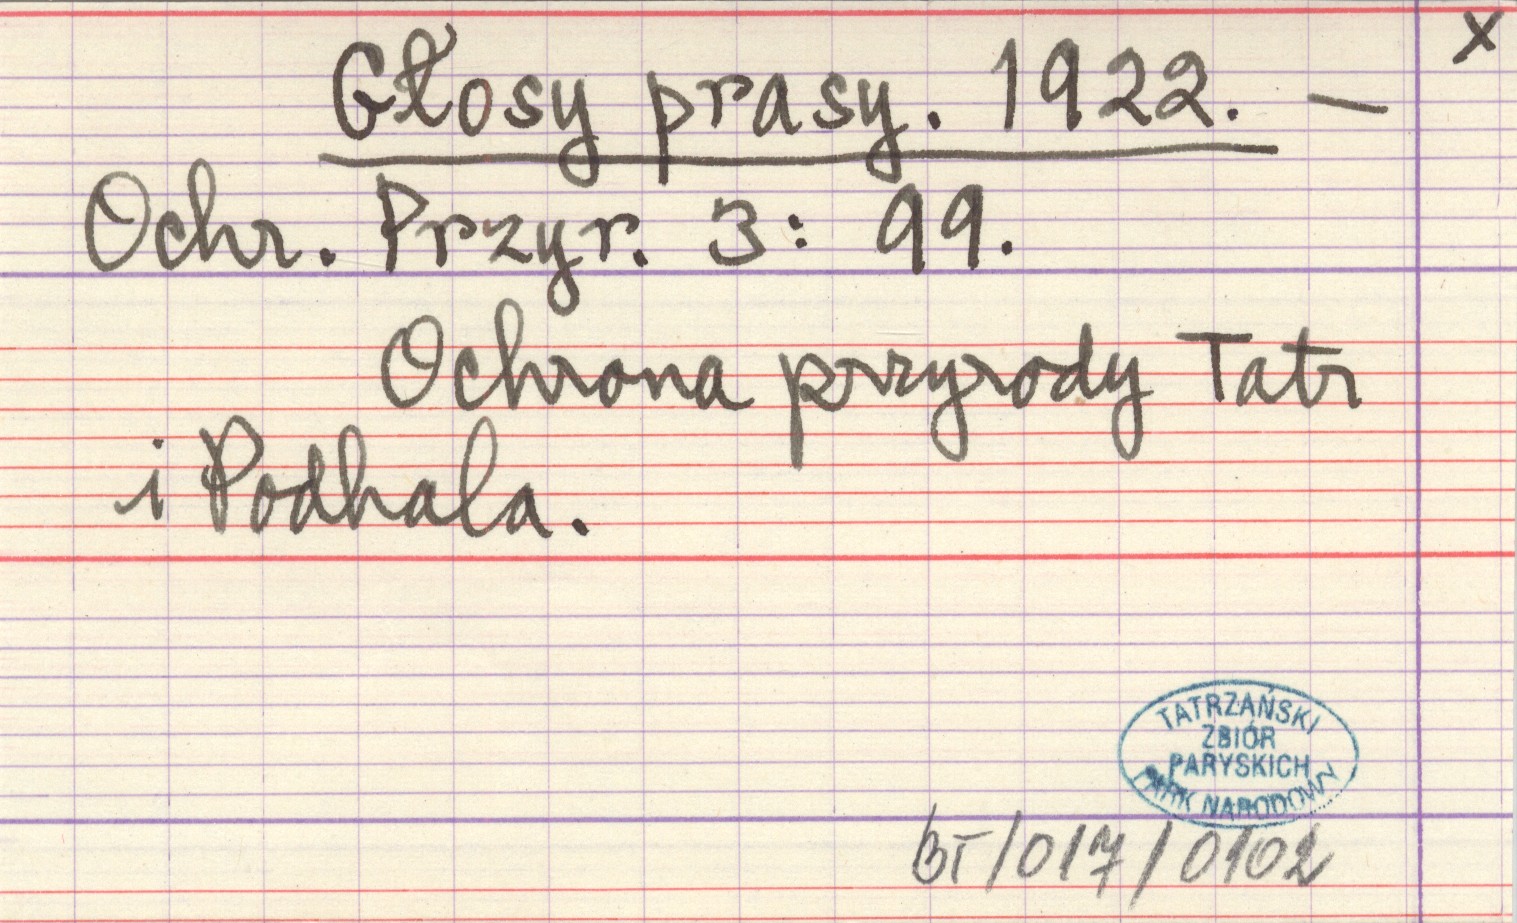 x
Głosy prasy. 1922. —
Ochr. Przyr. 3: 99.
Ochrona przyrody Tatr
i Podhala.
TATRZAŃSKI
ZBIÓR
PARYSKICH
PARK NARODOWY
BT/017/0102